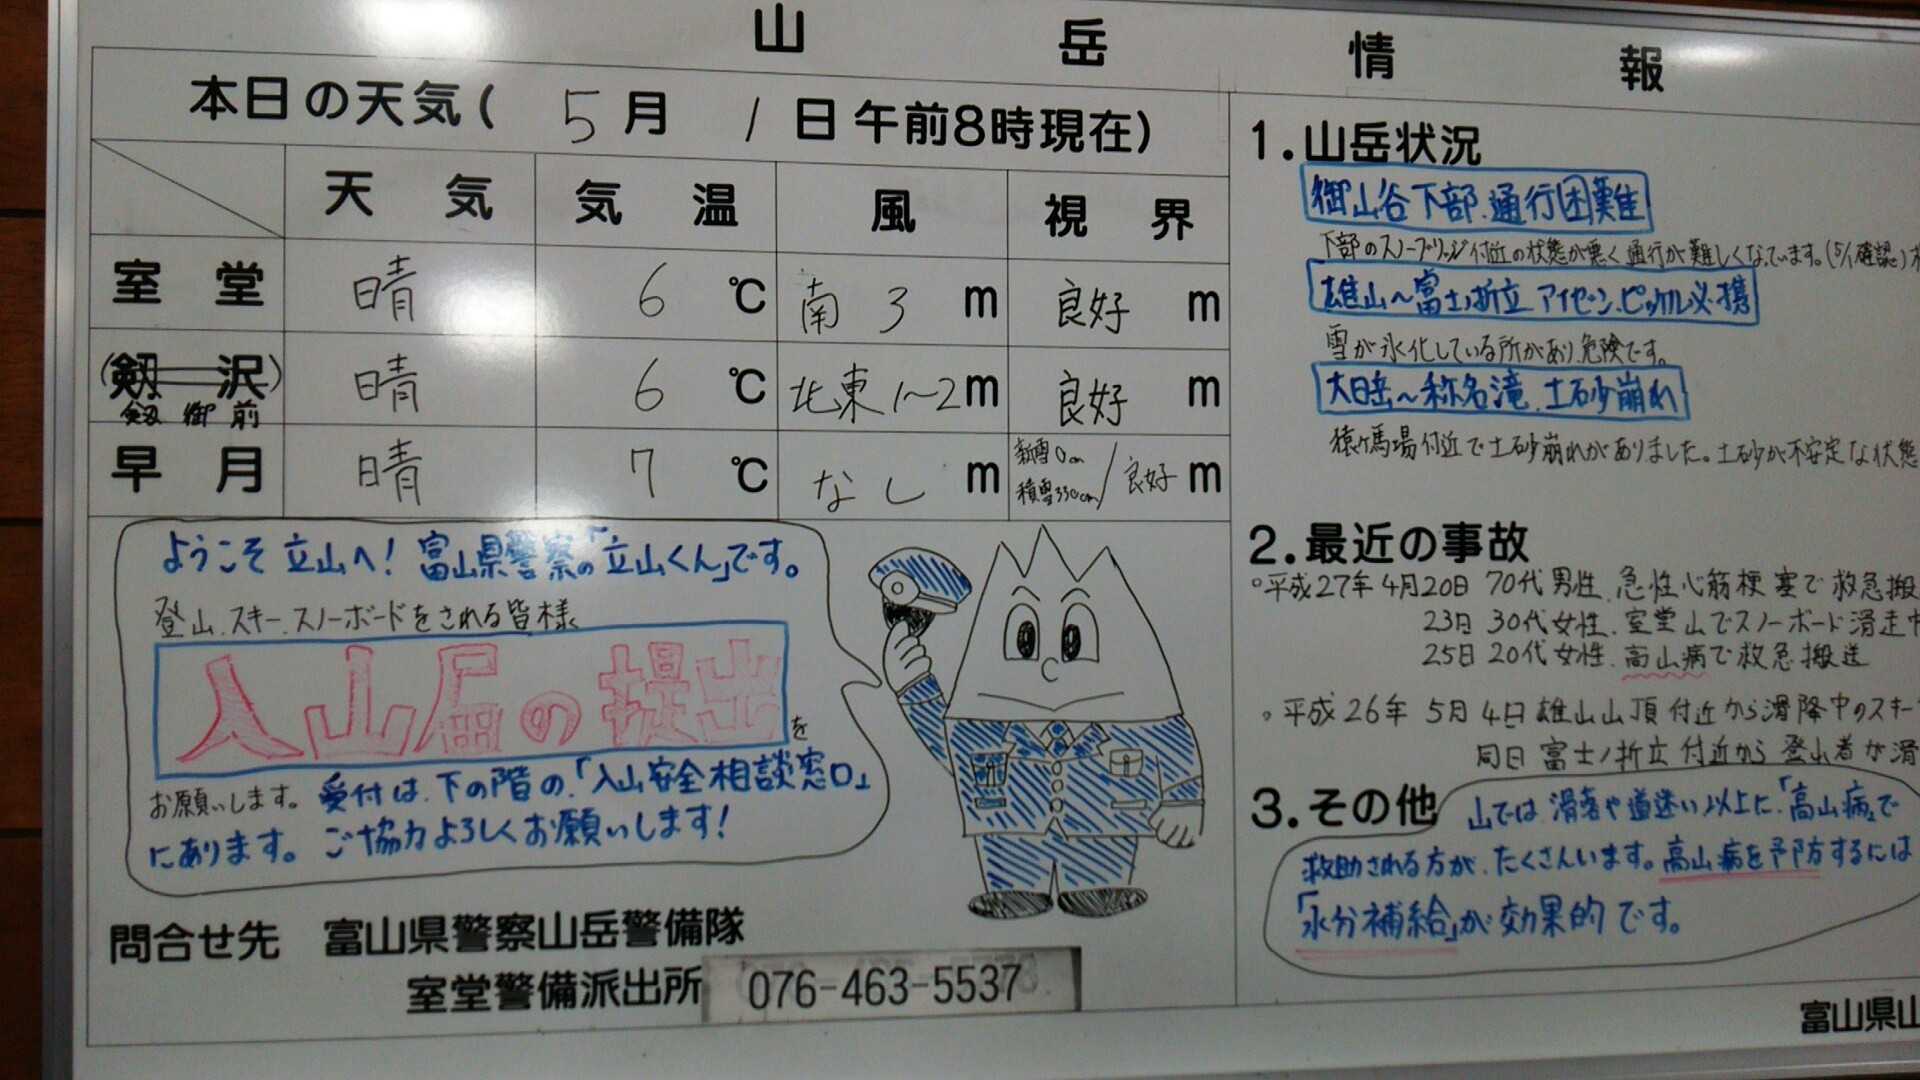 山岳情報
本日の天気(5月1日午前8時現在)
天気 気温 風 視界
室堂 晴 6℃ 南3m 良好m
(剱沢) 晴 6℃ 北東1〜2m 良好m
剱御前
早月 晴 7℃ なしm 新雪0cm 積雪330cm/良好m
ようこそ立山へ!富山県警察の「立山くん」です。
登山、スキー、スノーボードをされる皆様、
入山届の提出を
お願いします。受付は、下の階の、「入山安全相談窓口」
にあります。ご協力よろしくお願いします!
問合せ先 富山県警察山岳警備隊
室堂警備派出所 076-463-5537
1.山岳状況
御山谷下部、通行困難
下部のスノーブリッジ付近の状態が悪く通行が難しくなっています。(5/1確認)
雄山〜富士ノ折立 アイゼン、ピッケル必携
雪が氷化している所があり、危険です。
大日岳〜称名滝、土砂崩れ
猿ヶ馬場付近で土砂崩れがありました。土砂が不安定な状態
2.最近の事故
○平成27年4月20日 70代男性、急性心筋梗塞で救急搬
23日 30代女性、室堂山でスノーボード滑走中
25日 20代女性、高山病で救急搬送
○平成26年 5月4日 雄山山頂付近から滑降中のスキー
同日 富士ノ折立付近から登山者が滑
3.その他
山では、滑落や道迷い以上に、「高山病」で
救助される方が、たくさんいます。高山病を予防するには
「水分補給」が効果的です。
富山県山